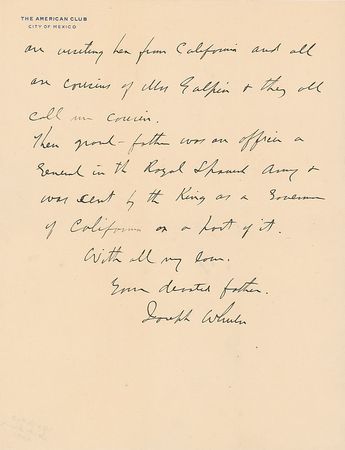 THE AMERICAN CLUB
CITY OF MEXICO
are visiting her from California and all
are cousins of Mrs Galpin & they all
call me cousin.
Their grand-father was an officer a
General in the Royal Spanish Army &
was sent by the King as a Governor
of California or a part of it.
With all my love.
Your devoted father.
Joseph Wheeler